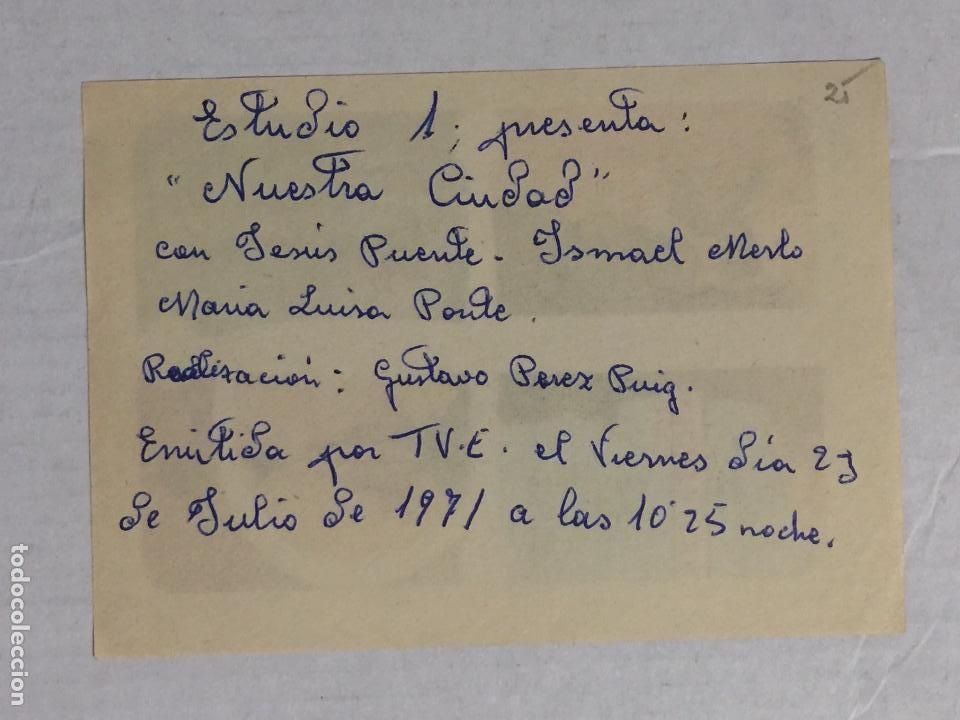 25
Estudio 1; presenta:
"Nuestra Ciudad"
con Jesús Puente - Ismael Merlo
Maria Luisa Ponte.
Realización: Gustavo Perez Puig.
Emitida por TV.E. el Viernes día 23
de Julio de 1971 a las 10'25 noche.
todocoleccion
todocoleccion.net